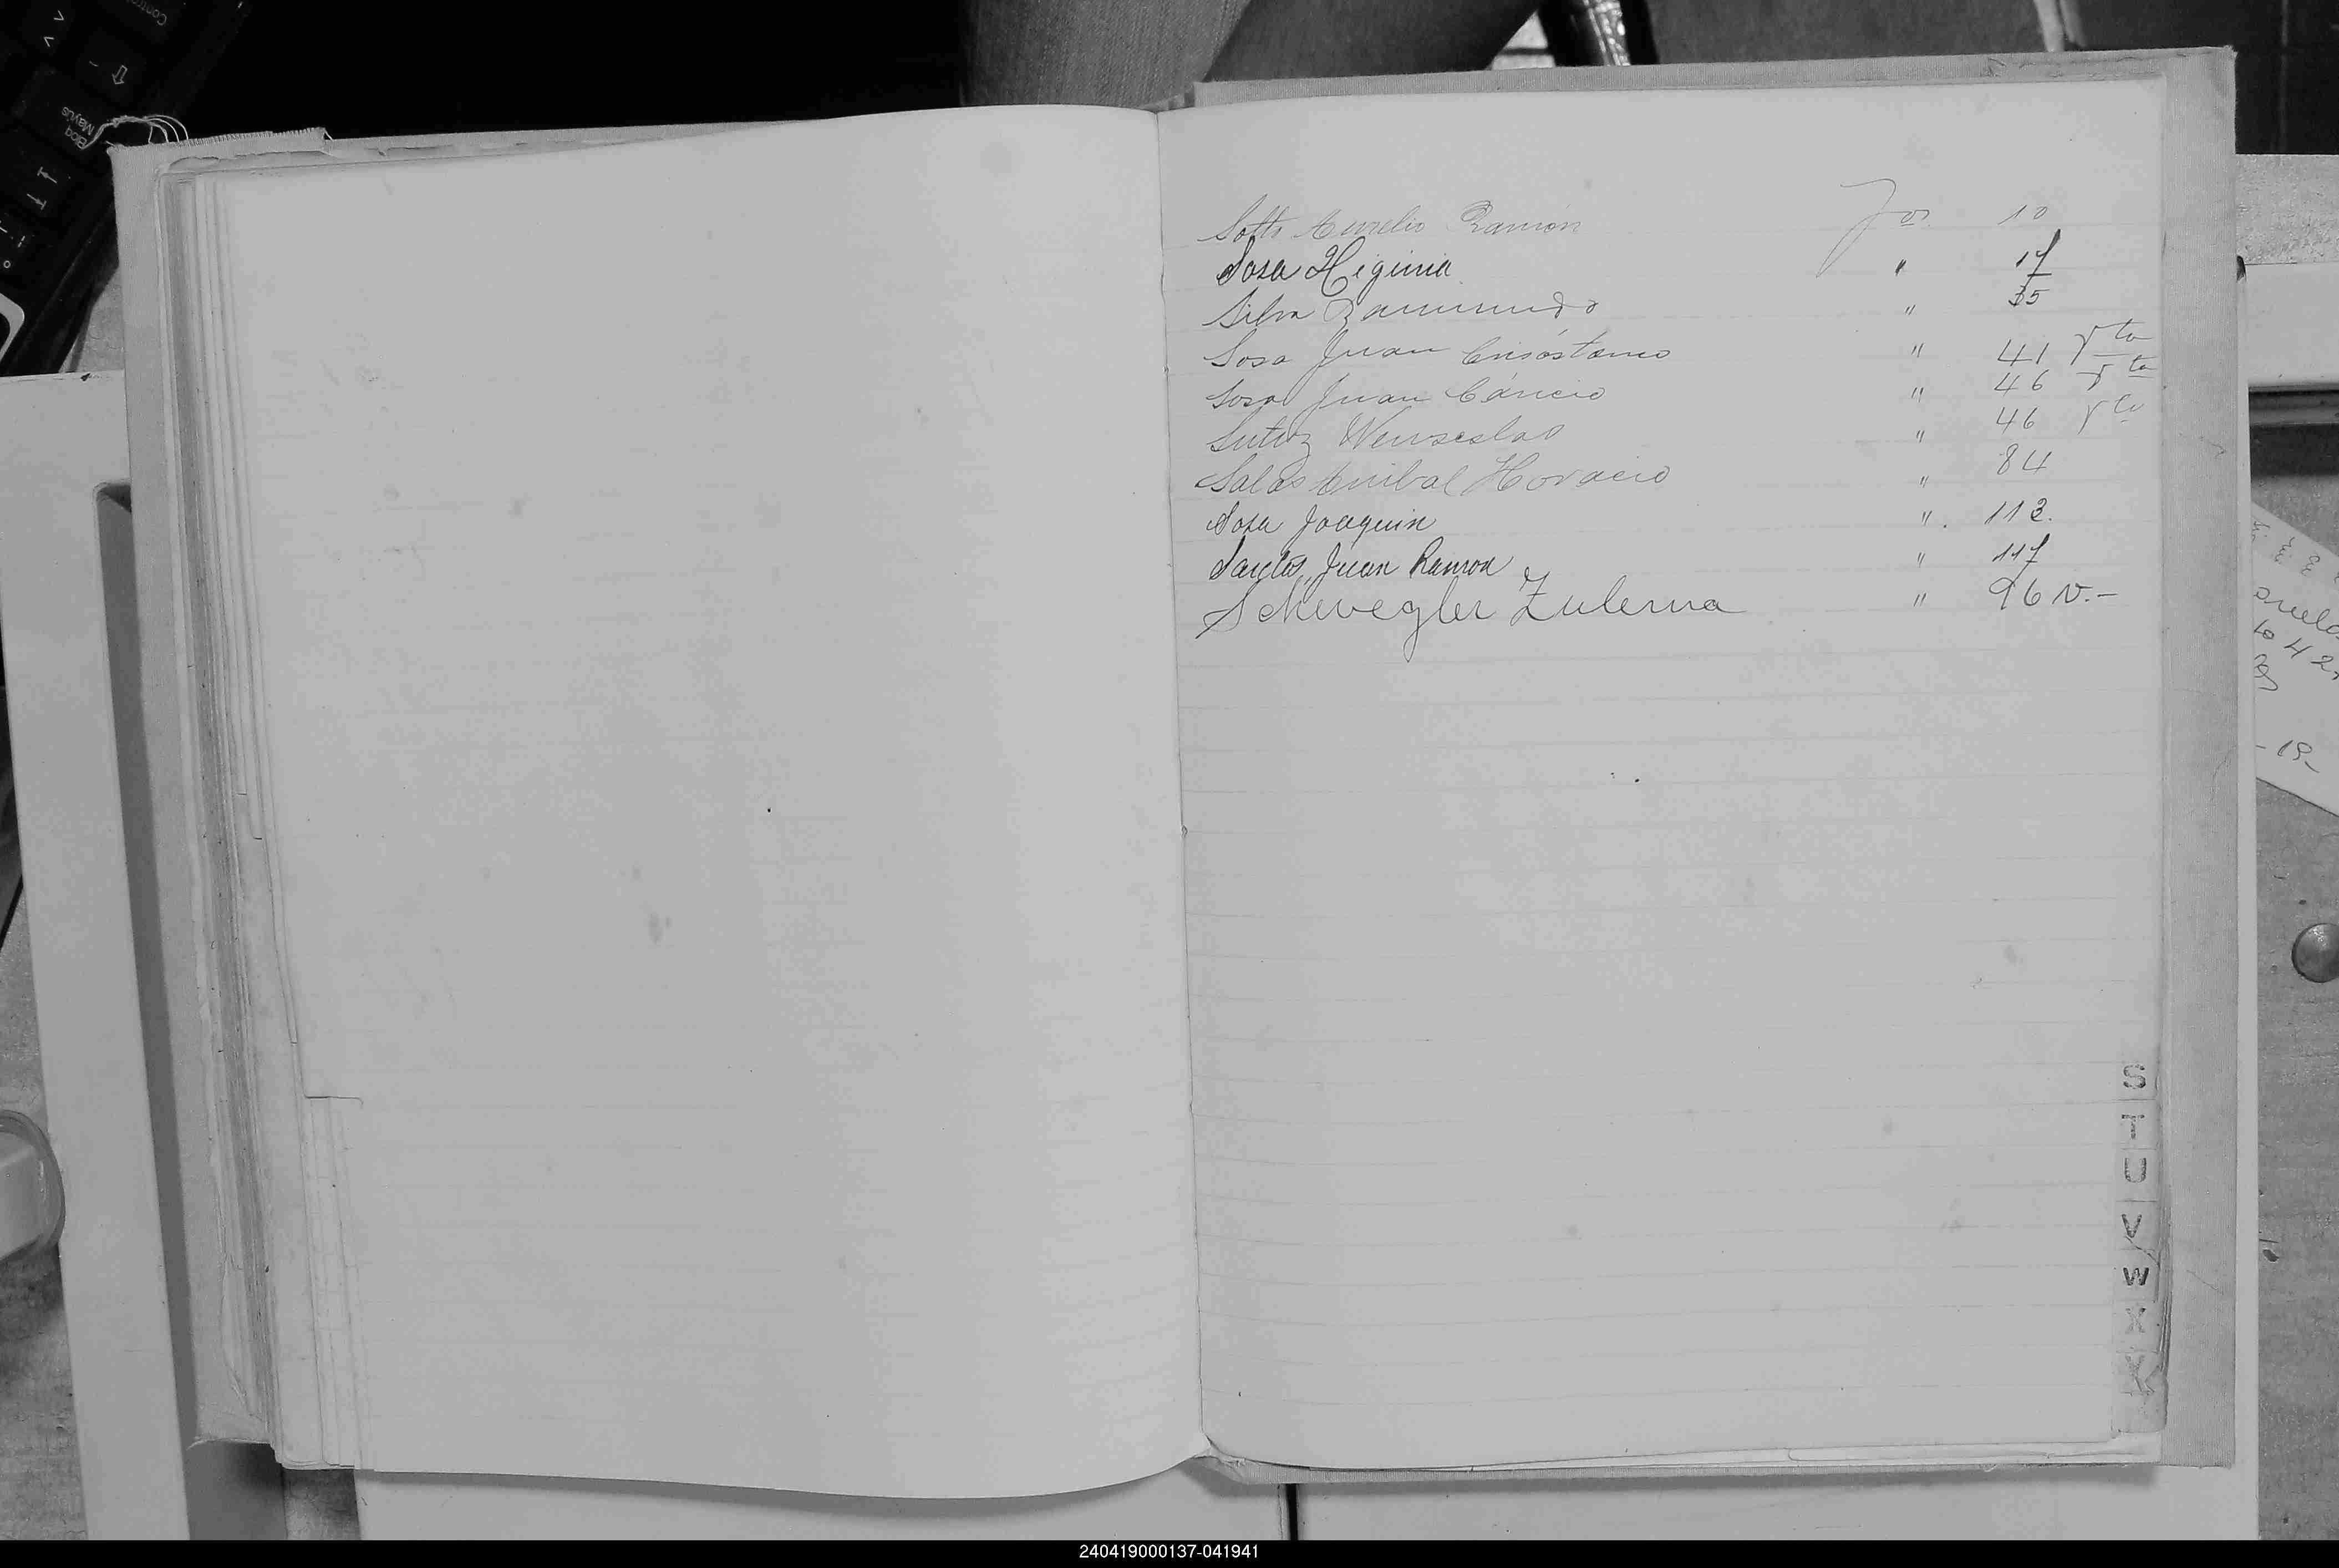 Sotto Aurelio Ramón Fos. 10
Sosa Higinia " 17
Silva Raimundo " 35
Sosa Juan Crisóstomo " 41 vta
Sosa Juan Cáncio " 46 vta
Wenseslao " 46 vta
Salas Anibal Horacio " 84
Sosa Joaquin " . 113.
Santos, Juan Ramon " 117
Schwegler Zulema " 96 v.-
S
T
U
V
W
X
Y
240419000137-041941